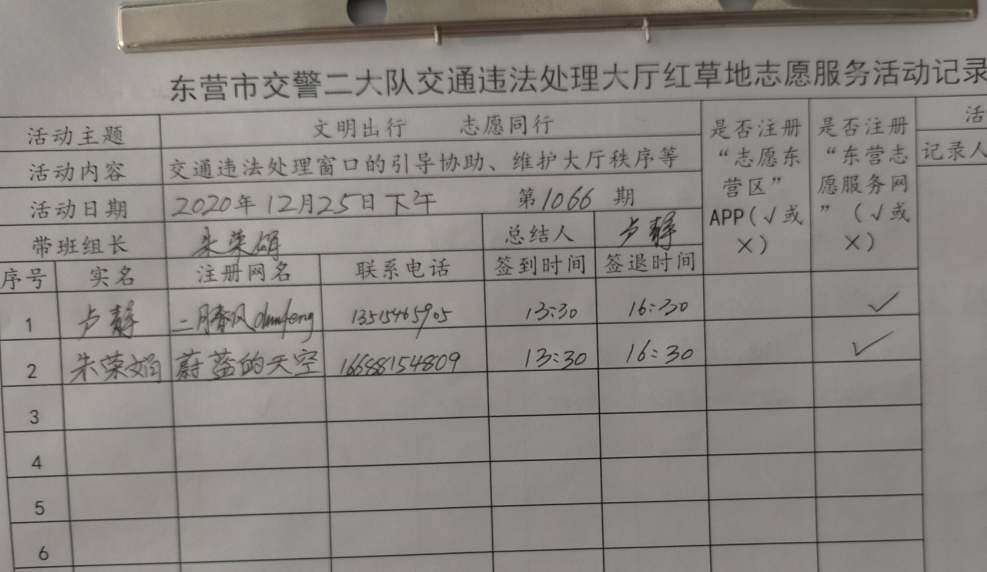 东营市交警二大队交通违法处理大厅红草地志愿服务活动记录
活动主题 文明出行 志愿同行 是否注册“志愿东营区”APP(√或×) 是否注册“东营志愿服务网”(√或×) 活
活动内容 交通违法处理窗口的引导协助、维护大厅秩序等 记录人
活动日期 2020年12月25日下午 第1066期
带班组长 朱荣娟 总结人 卢静
序号 实名 注册网名 联系电话 签到时间 签退时间
1 卢静 二月春风dumfeng 13515465905 13:30 16:30 √
2 朱荣娟 蔚蓝的天空 16688154809 13:30 16:30 √
3
4
5
6